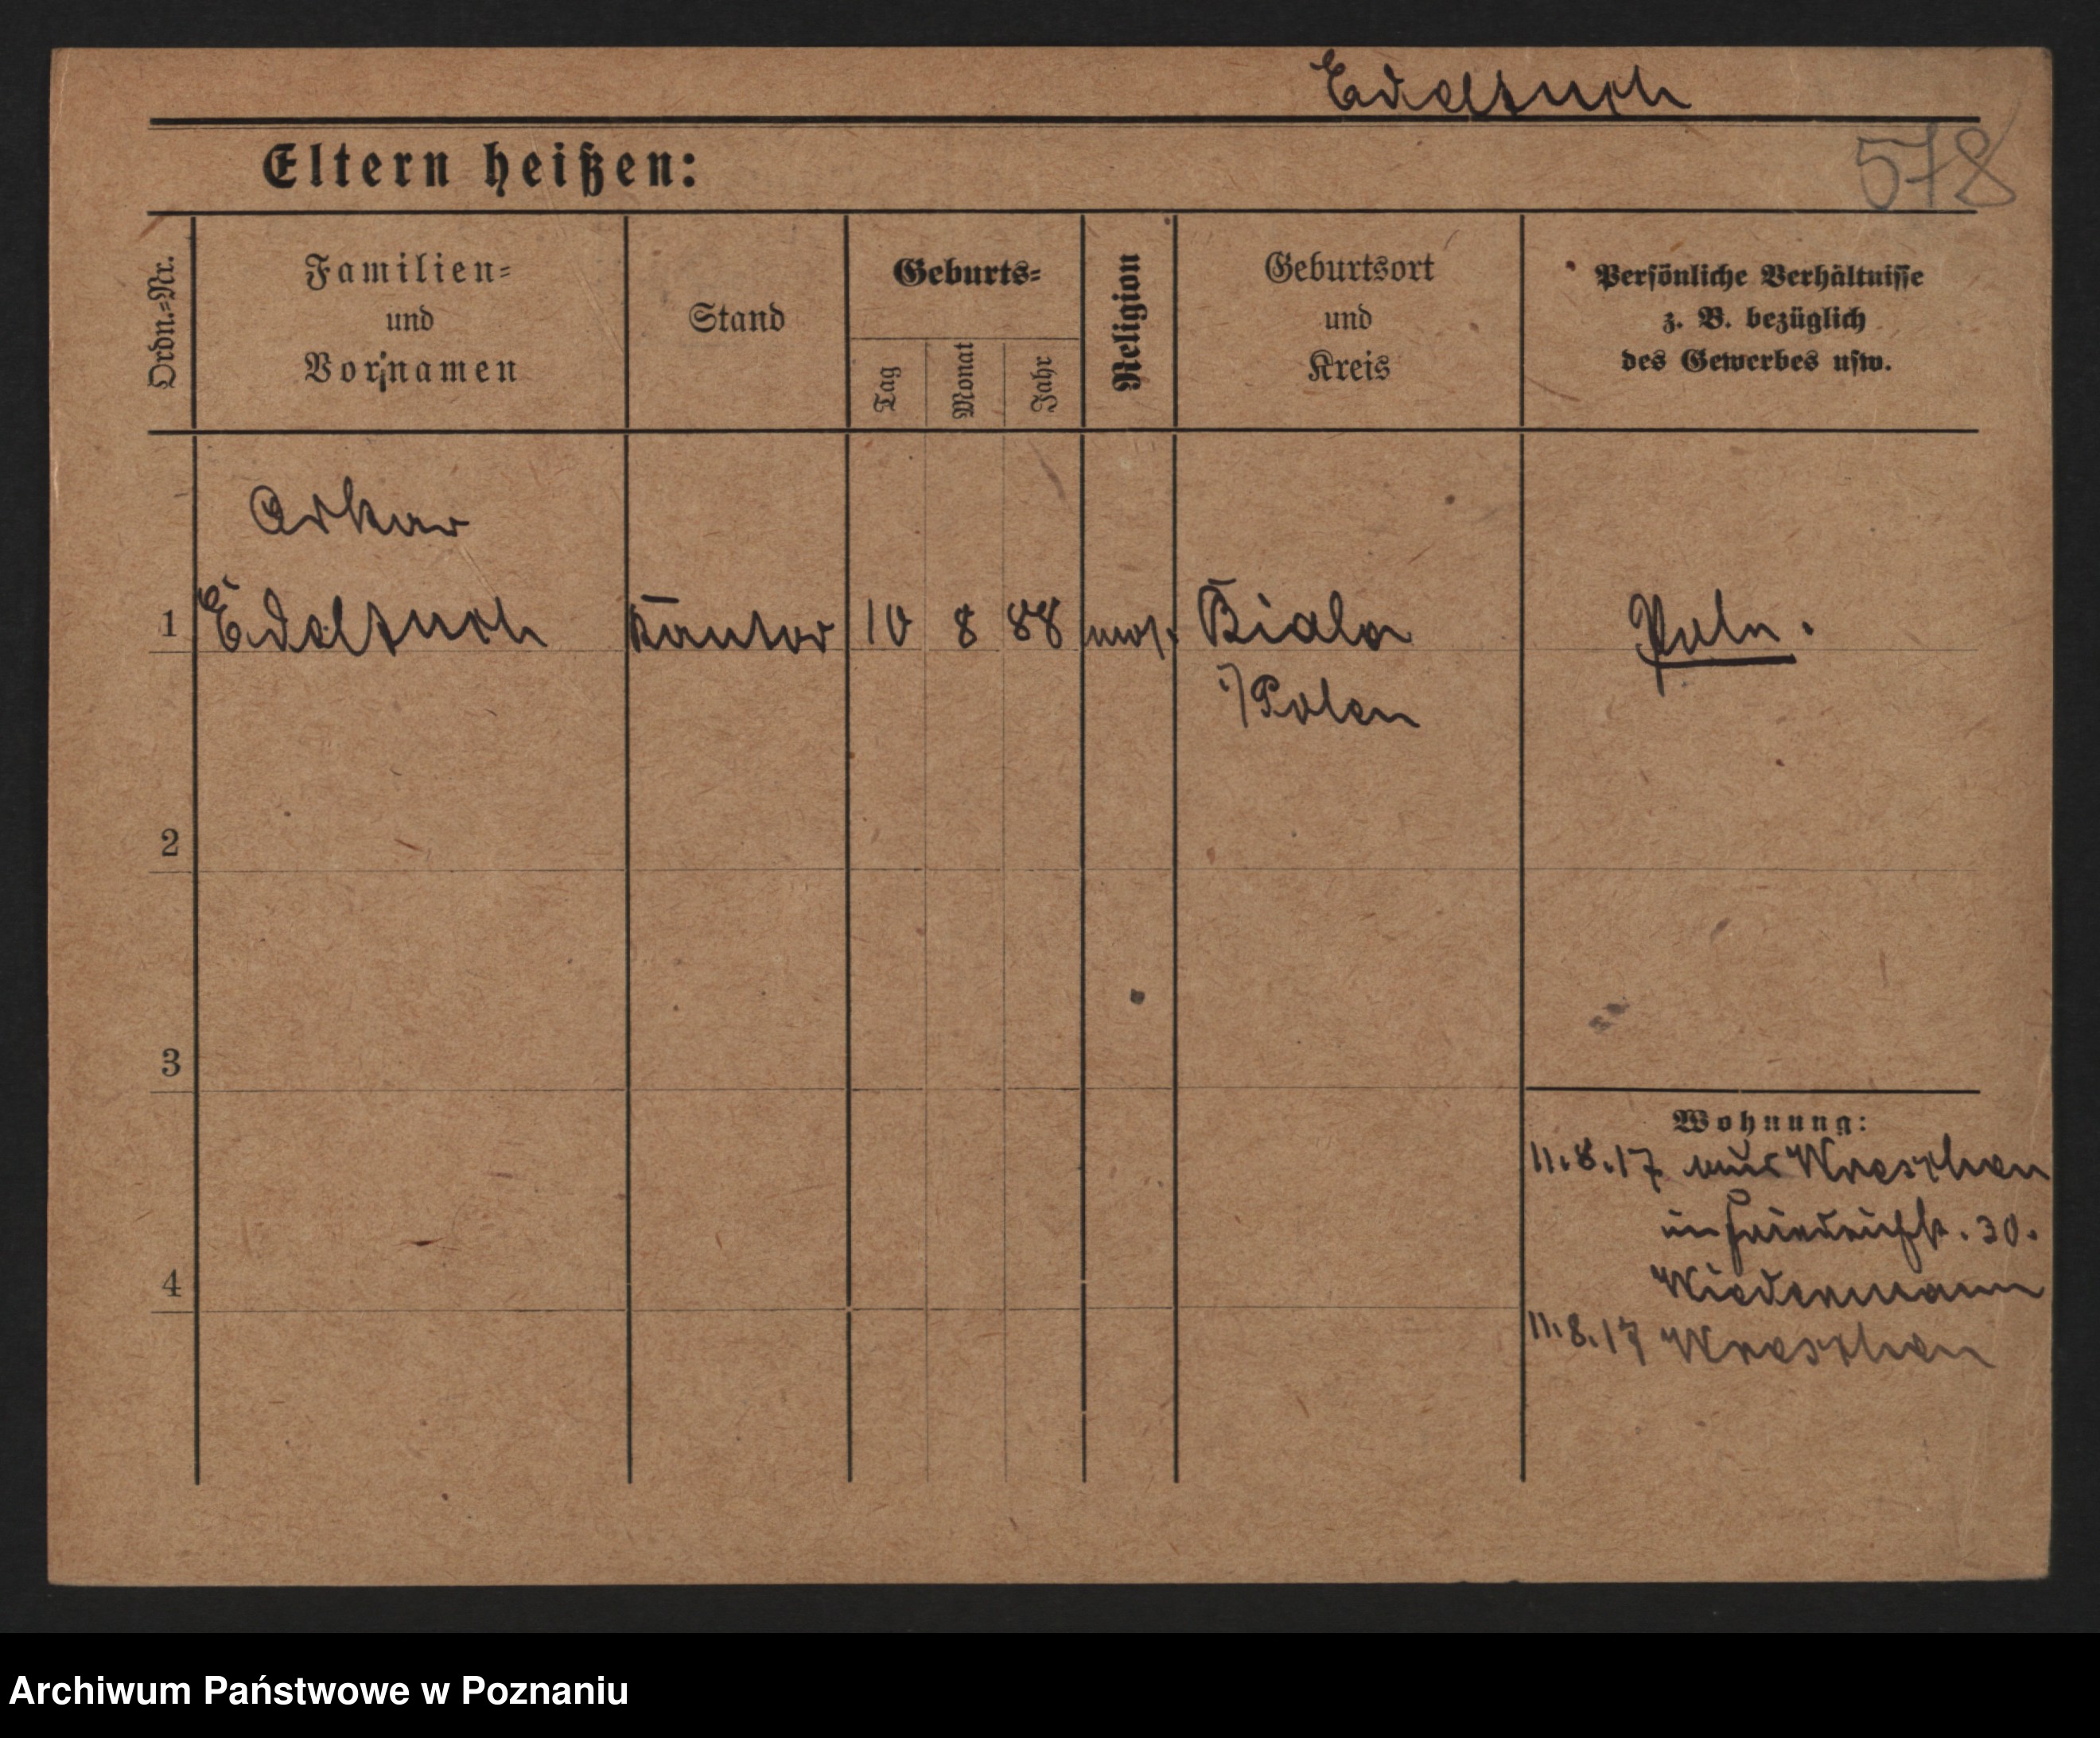 Edeltuch
Eltern heißen:
578
Ordn.-Nr.
Familien-
und
Vornamen
Stand
Geburts-
Tag
Monat
Jahr
Religion
Geburtsort
und
Kreis
Persönliche Verhältnisse
z. B. bezüglich
des Gewerbes usw.
Oskar
1 Edeltuch Kantor 10 8 88 mos. Biala Pole.
i/Polen
2
3
4
Wohnung:
11.8.17 aus Wreschen
in Friedrichst. 30.
Wiedermann
11.8.17 Wreschen
Archiwum Państwowe w Poznaniu